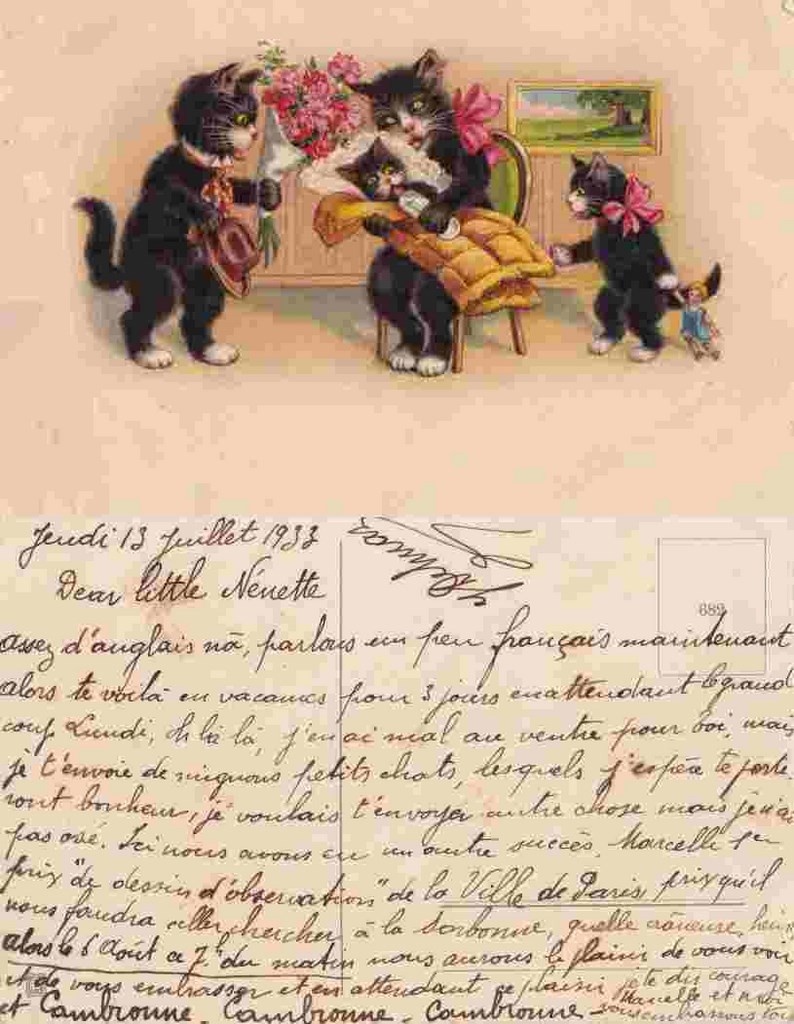 Jeudi 13 Juillet 1933
Dear little Nénette
689
assez d'anglais na, parlons un peu français maintenant
alors te voilà en vacances pour 3 jours en attendant le grand
coup Lundi, oh là là, j'en ai mal au ventre pour toi, mais
je t'envoie de mignons petits chats, lesquels j'espère te porte
ront bonheur, je voulais t'envoyer autre chose mais je n'ai
pas osé. Ici nous avons eu un autre succès, Marcelle 1er
prix "de dessin d'observation" de la Ville de Paris prix qu'il
nous faudra aller chercher à la Sorbonne, quelle crâneuse, hein
alors le 6 Août à 7h du matin nous aurons le plaisir de vous voir
et de vous embrasser et en attendant ce plaisir je te dis courage
et Cambronne - Cambronne - Cambronne Marcelle et moi
vous embrassons tous